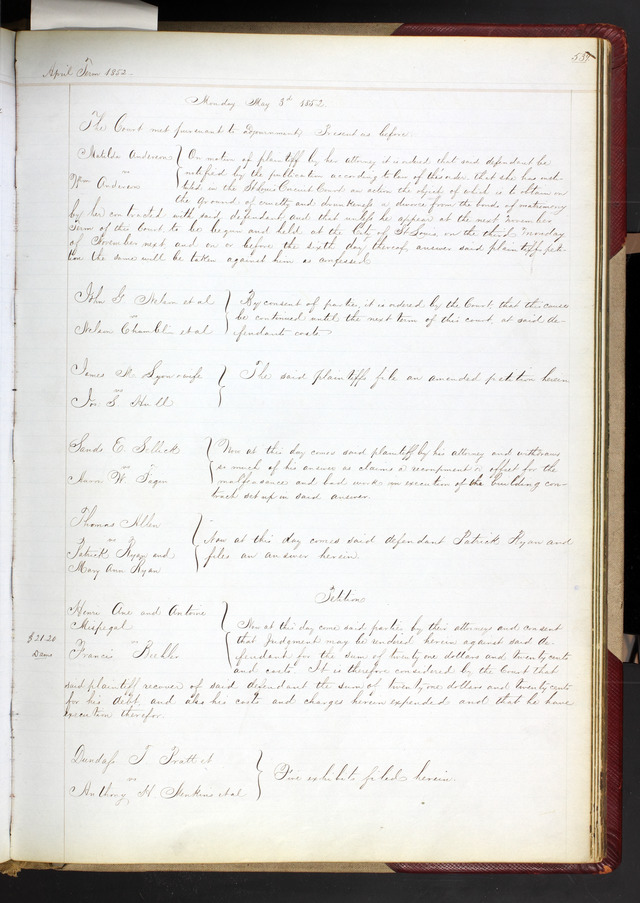 April Term 1852
Monday May 3d 1852
The Court met pursuant to adjournment, Present as before.
Matilda Anderson
vs
Wm Anderson
On motion of plaintiff by her attorney it is ordered that said defendant be
notified by the publication according to law of this order that she has insti-
tuted in the St Louis Circuit Court an action the object of which is to obtain on
the ground of cruelty and drunkenness a divorce from the bonds of matrimony
by her contracted with said defendant, and that unless he appear at the next November
Term of this Court, to be begun and held at the City of St Louis, on the third Monday
of November next, and on or before the sixth day thereof, answer said plaintiffs peti-
tion the same will be taken against him as confessed
John G. Nelson et al
vs
Nelson et al
By consent of parties, it is ordered by the Court, that this cause
be continued until the next term of this court, at said de-
fendants costs
James R. Lyon & wife
vs
Jos S. Hull
The said Plaintiffs file an amended petition herein
Sands E. Sellick
vs
W.
Now at this day comes said plaintiff by his attorney and withdraws
so much of his answer as claims a recoupment or offset for the
malfeasance and bad work in execution of the building con-
tract set up in said answer.
Thomas Allen
vs
Patrick Ryan and
Mary Ann Ryan
Now at this day comes said defendant Patrick Ryan and
files an answer herein.
Petition
Henri and Antoine
Mispegal
vs
Francis
$21.20
Dams
Now at this day come said parties by their attorneys and consent
that Judgment may be rendered herein against said de-
fendant for the sum of twenty one dollars and twenty cents
and costs. It is therefore considered by the Court that
said plaintiff recover of said defendant the sum of twenty one dollars and twenty cents
for his debt, and also his costs and charges herein expended and that he have
execution therefor.
Dundass T. Pratt
vs
Anthony H. Jenkins et al
Five exhibits filed herein.